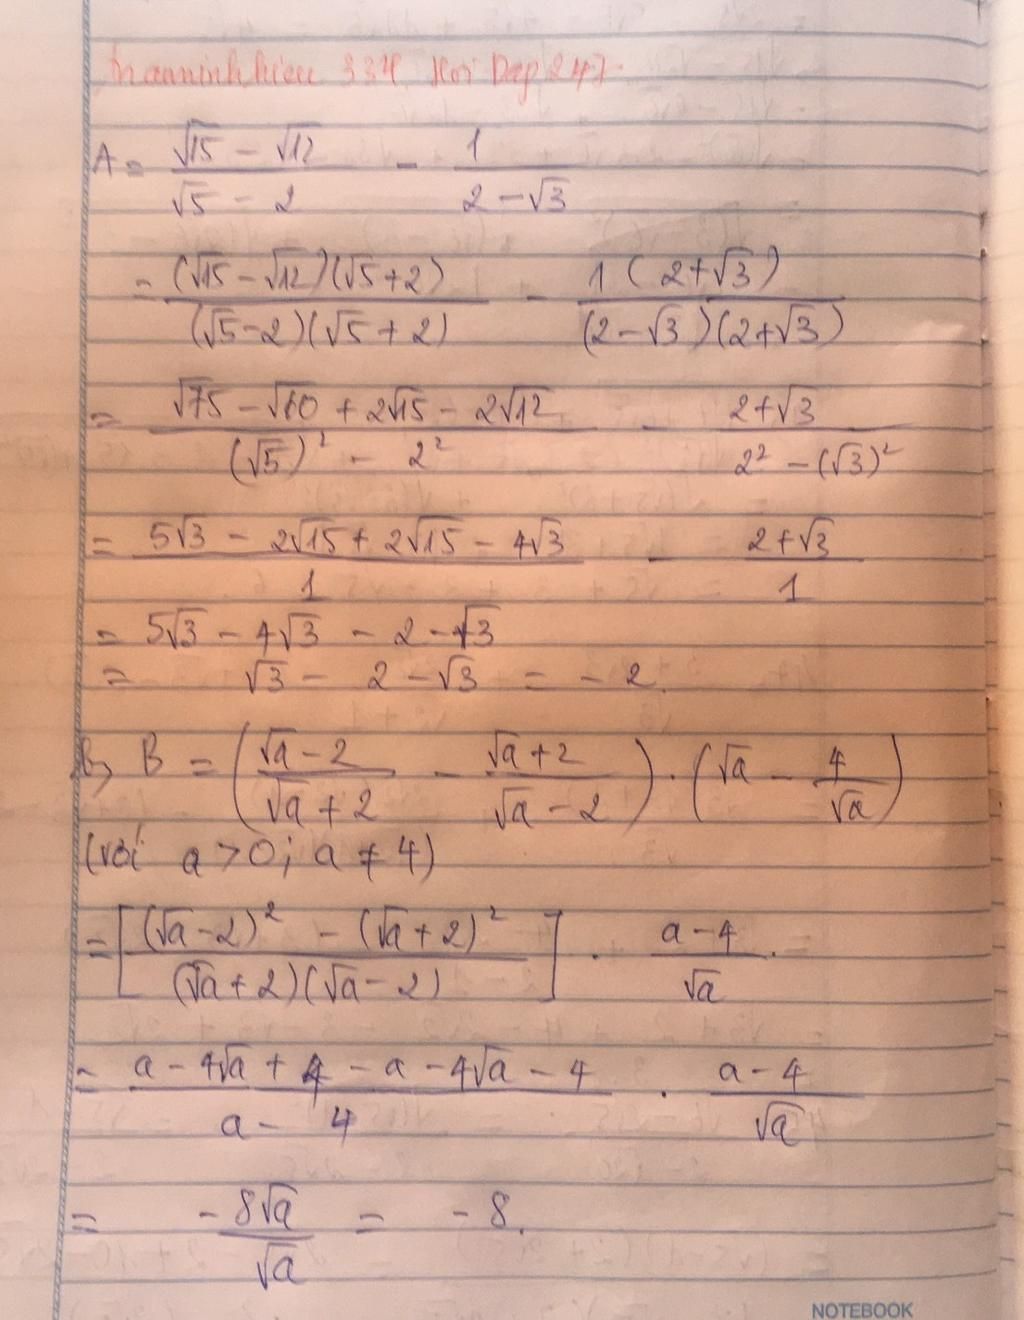 334 Hoi Dap 247
A = (√15 - √12)/(√5 - 2) - 1/(2 - √3)
= ((√15 - √12)(√5 + 2))/((√5 - 2)(√5 + 2)) - (1(2 + √3))/((2 - √3)(2 + √3))
= (√75 - √60 + 2√15 - 2√12)/((√5)² - 2²) - (2 + √3)/(2² - (√3)²)
= (5√3 - 2√15 + 2√15 - 4√3)/1 - (2 + √3)/1
= 5√3 - 4√3 - 2 - √3
= √3 - 2 - √3 = - 2.
B, B = ((√a - 2)/(√a + 2) - (√a + 2)/(√a - 2)) . (√a - 4/√a)
(với a > 0; a ≠ 4)
= [((√a - 2)² - (√a + 2)²)/((√a + 2)(√a - 2))] . (a - 4)/√a.
= (a - 4√a + 4 - a - 4√a - 4)/(a - 4) . (a - 4)/√a
= (- 8√a)/√a = - 8.
NOTEBOOK